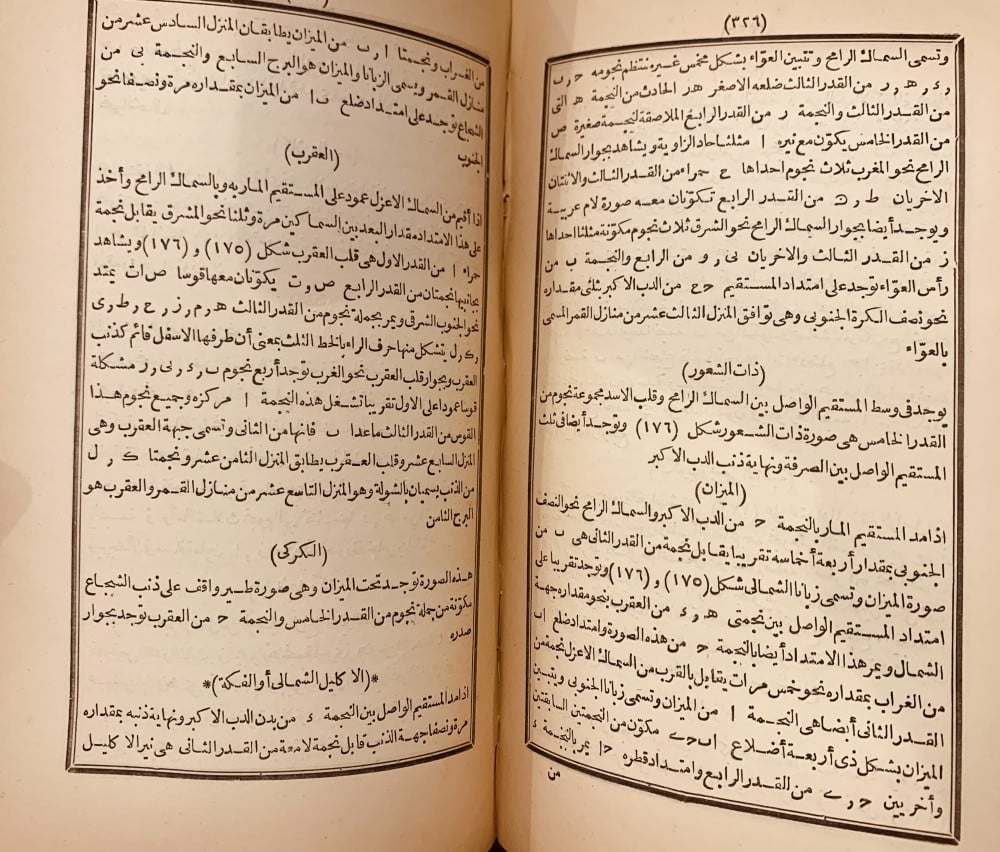 (٣٢٦)
وتسمى السماك الرامح وتتبين العوّاء بشكل مخمس غيره تنتظم نجومه ح ر ب
ر ء ر ه ر ر من القدر الثالث ضلعه الاصغر ه ر الحادث من النجمة ه التى
من القدر الثالث والنجمة ر من القدر الرابع الملاصقة لنجمة صغيرة ص
من القدر الخامس يكوّن مع نيره ا مثلثا حاد الزاوية ويشاهد بجوار السماك
الرامح نحو المغرب ثلاث نجوم احداها ح حمراء من القدر الثالث والاثنتان
الاخريان ط ر من القدر الرابع تكوّنان معه صورة لام عربية
ويوجد أيضا بجوار السماك الرامح نحو الشرق ثلاث نجوم مكوّنة مثلثا احداها
ز من القدر الثالث والاخريان لى ر و من الرابع والنجمة ب من
رأس العوّاء توجد على امتداد المستقيم ح ج من الدب الاكبر بثلثى مقداره
نحو نصف الكرة الجنوبى وهى توافق المنزل الثالث عشر من منازل القمر المسمى
بالعوّاء
(ذات الشعور)
يوجد فى وسط المستقيم الواصل بين السماك الرامح وقلب الاسد مجموعة نجوم من
القدر الخامس هى صورة ذات الشعور شكل (١٧٦) ويوجد أيضا فى ثلث
المستقيم الواصل بين الصرفة ونهاية ذنب الدب الاكبر
(الميزان)
اذا مد المستقيم المار بالنجمة ح من الدب الاكبر والسماك الرامح نحو النصف
الجنوبى بمقدار أربعة أخماسه تقريبا يقابل نجمة من القدر الثانى هى ب من
صورة الميزان وتسمى زبانا الشمالى شكل (١٧٥) و (١٧٦) وتوجد تقريبا على
امتداد المستقيم الواصل بين نجمتى ه ر ء من العقرب بنحو مقداره جهة
الشمال ويمر هذا الامتداد أيضا بالنجمة ح من هذه الصورة وامتداد ضلع اب
من الغراب بمقداره نحو خمس مرات يقابل بالقرب من السماك الاعزل نجمة من
القدر الثانى أيضا هى النجمة ا من الميزان وتسمى زبانا الجنوبى ويتبين
الميزان بشكل ذى أربعة أضلاع ا ب ح ے مكوّن من النجمتين السابقتين
وأخريين ح ر ے من القدر الرابع وامتداد قطره ح ا يمر بالنجمة ء
من
من الغراب ونجمتا ا ر ب من الميزان يطابقان المنزل السادس عشر من
منازل القمر ويسمى الزبانا والميزان هو البرج السابع والنجمة بى من
الشجاع توجد على امتداد ضلع ب ا من الميزان بمقداره مرة ونصفا نحو
الجنوب
(العقرب)
اذا أقيم من السماك الاعزل عمود على المستقيم المار به وبالسماك الرامح وأخذ
على هذا الامتداد مقدار البعد بين السماكين مرة وثلثا نحو المشرق يقابل نجمة
حمراء ا من القدر الاول هى قلب العقرب شكل (١٧٥) و (١٧٦) ويشاهد
بجانبها نجمتان من القدر الرابع ص ر ت يكوّنان معها قوسا ص ا ت يمتد
نحو الجنوب الشرقى ويمر بجملة نجوم من القدر الثالث ه ر م ر ز ر ح ر ط ر ى
ر ك ر ل يتشكل منها حرف الراء بالخط الثلث بمعنى أن طرفها الاسفل قائم كذنب
العقرب وبجوار قلب العقرب نحو الغرب توجد أربع نجوم ب ر ء ر بى ر ر مشكلة
قوسا عمودا على الاول تقريبا تشغل هذه النجمة ا مركزه وجميع نجوم هذا
القوس من القدر الثالث ماعدا ب فانها من الثانى وتسمى جبهة العقرب وهى
المنزل السابع عشر وقلب العقرب يطابق المنزل الثامن عشر ونجمتا ك ر ل
من الذنب يسميان بالشولة وهو المنزل التاسع عشر من منازل القمر والعقرب هو
البرج الثامن
(الكركى)
هذه الصورة توجد تحت الميزان وهى صورة طير واقف على ذنب الشجاع
مكوّنة من جملة نجوم من القدر الخامس والنجمة ح من العقرب توجد بجوار
صدره
*(الاكليل الشمالى أو الفكة)*
اذا مد المستقيم الواصل بين النجمة ء من بدن الدب الاكبر ونهاية ذنبه بمقداره
مرة ونصفا جهة الذنب قابل نجمة لامعة من القدر الثانى هى نير الاكليل